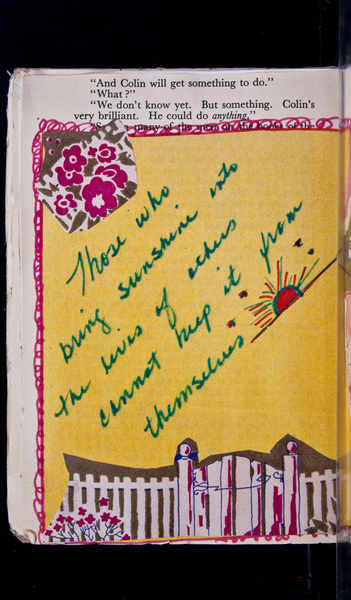 "And Colin will get something to do."
"What?"
"We don't know yet. But something. Colin's
very brilliant. He could do anything."
many of the men on the
Those who
bring sunshine into
the lives of others
cannot keep it from
themselves